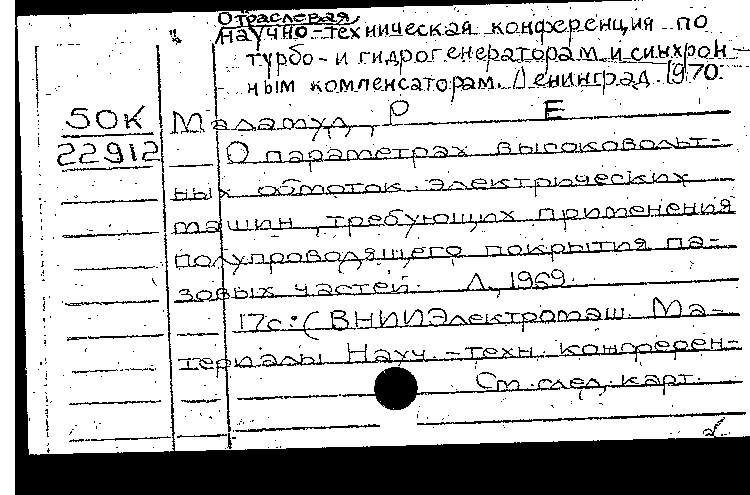 Отраслевая
научно-техническая конференция по
турбо- и гидрогенераторам и синхрон-
ным компенсаторам. Ленинград. 1970.
50К Маламуд, Р Е
22912 О параметрах высоковольт-
ных обмоток электрических
машин, требующих применения
полупроводящего покрытия па-
зовых частей. Л., 1969.
17с. (ВНИИЭлектромаш. Ма-
териалы Науч.-техн. конферен-
См. след. карт.